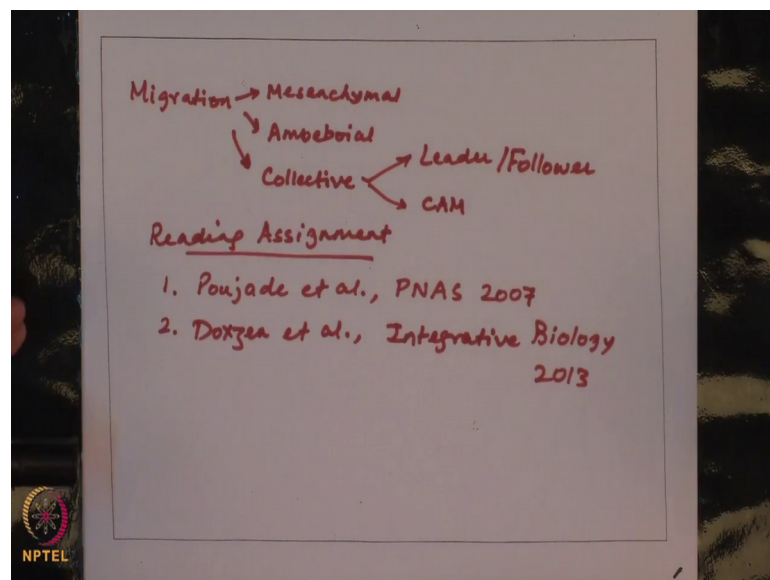 Migration → Mesenchymal
Amoeboial
Collective
Leader/Follower
CAM
Reading Assignment
1. Poujade et al., PNAS 2007
2. Doxzen et al., Integrative Biology
2013
NPTEL